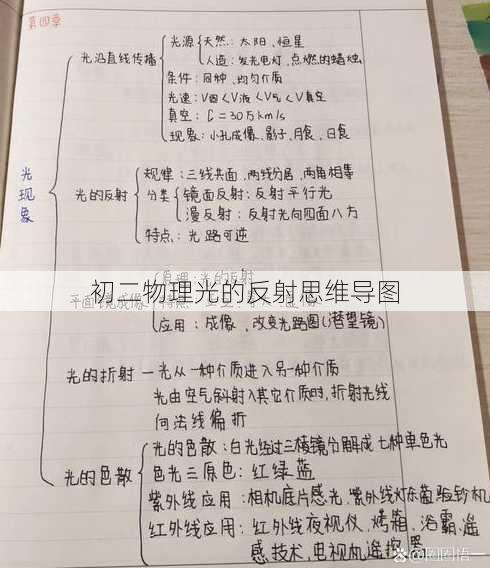 第四章
光现象
光沿直线传播
光源 天然：太阳、恒星
人造：发光电灯、点燃的蜡烛
条件：同种、均匀介质
光速：V固<V液<V气<V真空
真空：C=30万km/s
现象：小孔成像、影子、月食、日食
光的反射
规律：三线共面，两线分居，两角相等
分类 镜面反射：反射平行光
漫反射：反射光向四面八方
特点：光路可逆
初二物理光的反射思维导图
平面镜成像
原理：光的反射
应用：成像、改变光路图(潜望镜)
光的折射 — 光从一种介质进入另一种介质
光由空气斜射入其它介质时，折射光线
向法线偏折
光的色散
光的色散：白光经过三棱镜分解成七种单色光
色光三原色：红绿蓝
紫外线应用：相机底片感光、紫外线灯杀菌、验钞机
红外线应用：红外线夜视仪、烤箱、浴霸、遥
感技术、电视机遥控器